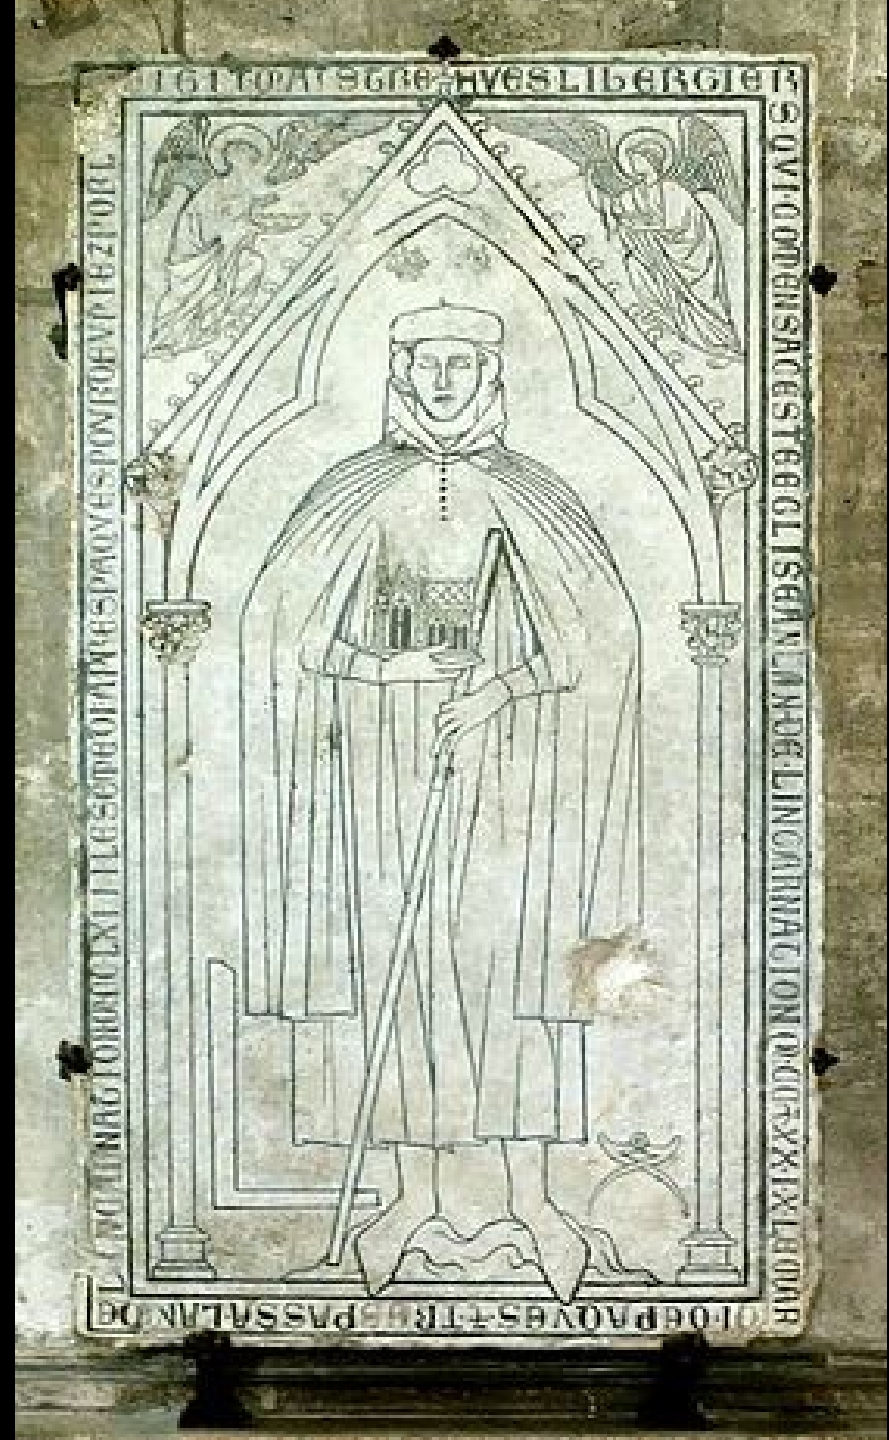 GIT MAISTRE + HVES LIBERGIER
S QVI COMENSA CESTE EGLISE AN LAN DE LINCARNATION M CC + XXIX LE MAR
DI DE PAQVES + TRESPASSA LAN DE
LINCARNATION MCCLXIII LE SEMEDI APRES PAQVES POVR DEV PIEZ POR L